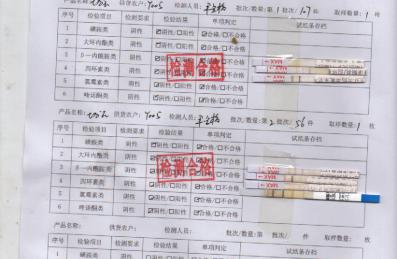 产品名称: 供货农户: Y005 检测人员: 批次/数量:第 1 批次/ 件 取样数量: 1 件
序号 检验项目 检测要求 检验结果 单项判定 试纸条存档
1 磺胺类 阴性 ☑阴性/□阳性 ☑合格/□不合格
2 大环内酯类 阴性 ☑阴性/□阳性 ☑合格/□不合格
3 β一内酰胺类 阴性 ☑阴性/□阳性 ☑合格/□不合格
4 四环素类 阴性 ☑阴性/□阳性 ☑合格/□不合格
5 氯霉素类 阴性 ☑阴性/□阳性 ☑合格/□不合格
6 喹诺酮类 阴性 ☑阴性/□阳性 ☑合格/□不合格
检测合格
MAX
产品名称: 供货农户: Y005 检测人员: 批次/数量:第 2 批次/ 56 件 取样数量: 1 枚
序号 检验项目 检测要求 检验结果 单项判定 试纸条存档
1 磺胺类 阴性 ☑阴性/□阳性 ☑合格/□不合格
2 大环内酯类 阴性 ☑阴性/□阳性 ☑合格/□不合格
3 β一内酰胺类 阴性 ☑阴性/□阳性 ☑合格/□不合格
4 四环素类 阴性 ☑阴性/□阳性 ☑合格/□不合格
5 氯霉素类 阴性 ☑阴性/□阳性 ☑合格/□不合格
6 喹诺酮类 阴性 ☑阴性/□阳性 ☑合格/□不合格
检测合格
MAX
产品名称: 供货农户: 检测人员: 批次/数量:第 批次/ 件 取样数量: 枚
序号 检验项目 检测要求 检验结果 单项判定 试纸条存档
1 磺胺类 阴性 □阴性/□阳性 □合格/□不合格